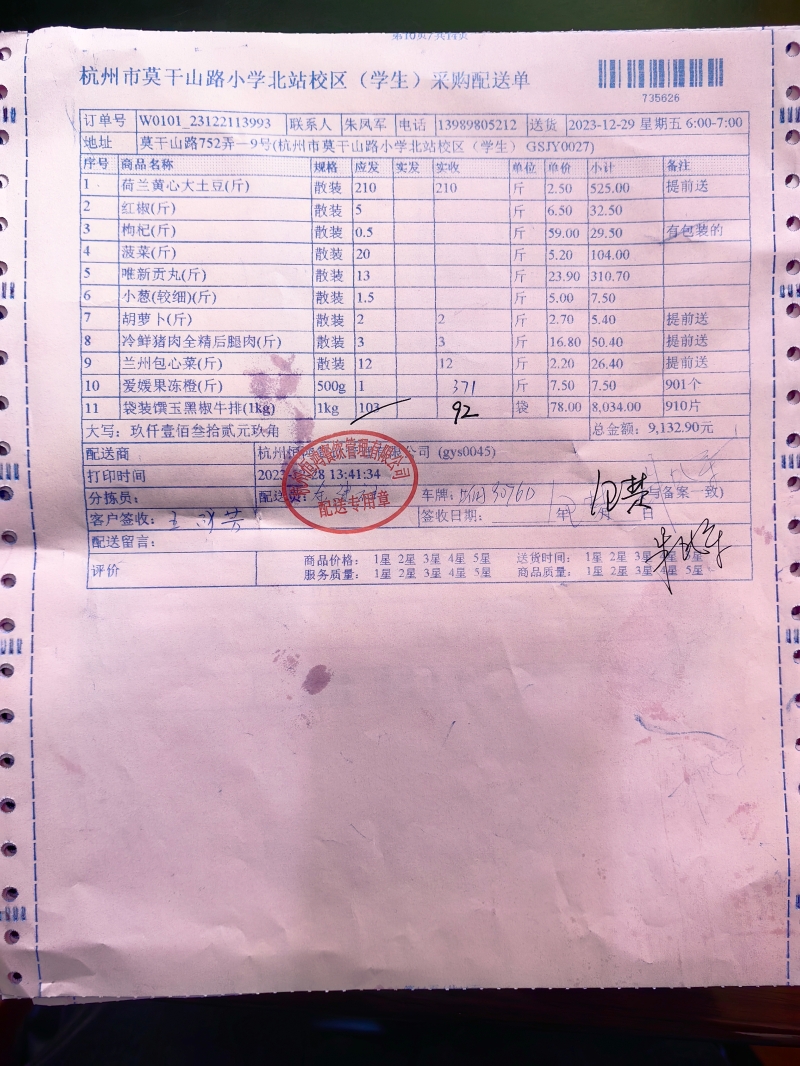 第10页/共14页
杭州市莫干山路小学北站校区（学生）采购配送单
735626
订单号 W0101_23122113993 联系人 朱凤军 电话 13989805212 送货 2023-12-29 星期五 6:00-7:00
地址 莫干山路752弄一9号(杭州市莫干山路小学北站校区（学生） GSJY0027)
序号 商品名称 规格 应发 实发 实收 单位 单价 小计 备注
1 荷兰黄心大土豆(斤) 散装 210 210 斤 2.50 525.00 提前送
2 红椒(斤) 散装 5 斤 6.50 32.50
3 枸杞(斤) 散装 0.5 斤 59.00 29.50 有包装的
4 菠菜(斤) 散装 20 斤 5.20 104.00
5 唯新贡丸(斤) 散装 13 斤 23.90 310.70
6 小葱(较细)(斤) 散装 1.5 斤 5.00 7.50
7 胡萝卜(斤) 散装 2 2 斤 2.70 5.40 提前送
8 冷鲜猪肉全精后腿肉(斤) 散装 3 3 斤 16.80 50.40 提前送
9 兰州包心菜(斤) 散装 12 12 斤 2.20 26.40 提前送
10 爱媛果冻橙(斤) 500g 1 371 斤 7.50 7.50 901个
11 袋装馔玉黑椒牛排(1kg) 1kg 103 92 袋 78.00 8,034.00 910片
大写：玖仟壹佰叁拾贰元玖角 总金额：9,132.90元
配送商 杭州恒 限公司 (gys0045)
打印时间 28 13:41:34
分拣员： 配送员： 车牌： 与备案一致)
配送专用章
客户签收： 签收日期： 年 月 日
配送留言：
评价 商品价格： 1星 2星 3星 4星 5星 送货时间： 1星 2星 3星 5星
服务质量： 1星 2星 3星 4星 5星 商品质量： 1星 2星 3星 4星 5星